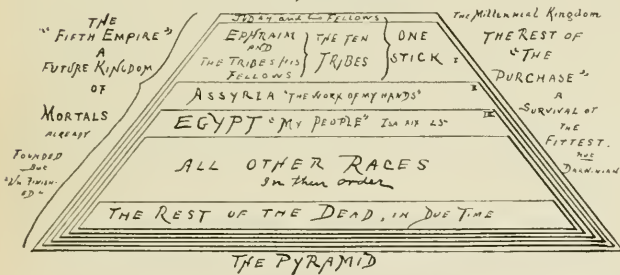 THE
"FIFTH EMPIRE"
A
FUTURE KINGDOM
OF
MORTALS
ALREADY
FOUNDED
BUT
"UNFINISH-
ED"
JUDAH and FELLOWS
EPHRAIM
AND
THE TRIBES HIS
FELLOWS
THE TEN
TRIBES
ONE
STICK I
ASSYRIA "THE WORK OF MY HANDS" II
EGYPT "MY PEOPLE" ISA XIX 25 III
ALL OTHER RACES
In their order
THE REST OF THE DEAD, IN DUE TIME
THE PYRAMID
The Millennial Kingdom
THE REST OF
"THE
PURCHASE"
A
SURVIVAL OF
THE
FITTEST.
NOT
DARWINIAN